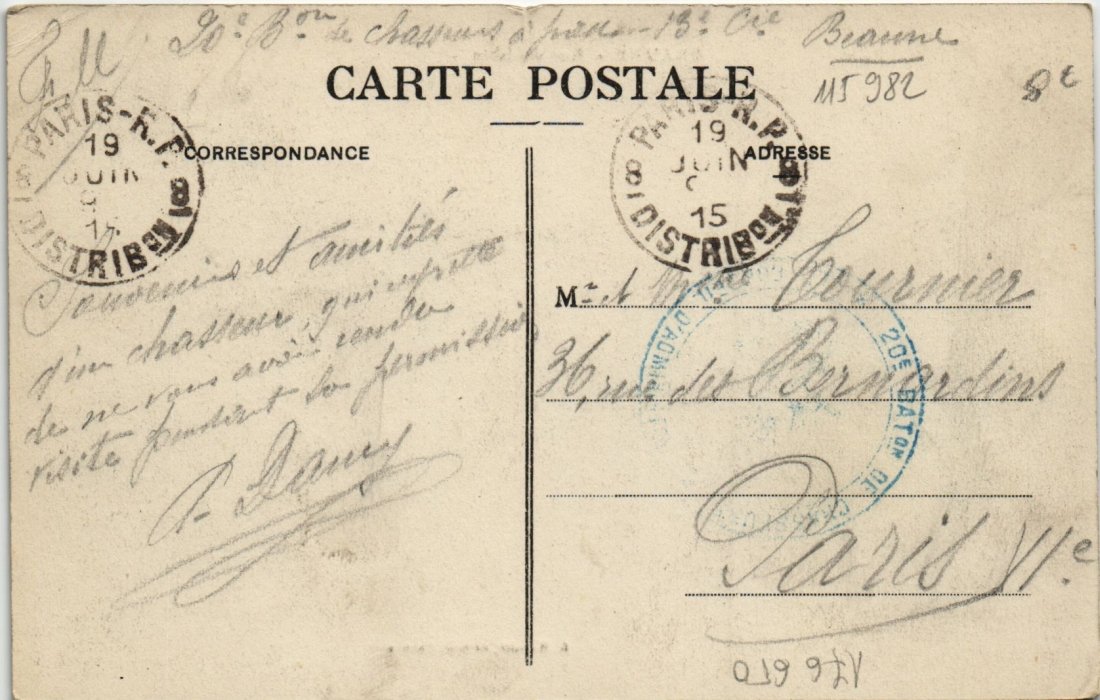 F. M
20e Bon de chasseurs à pied - 13e Cie Beaune
115 982
8 e
CARTE POSTALE
PARIS-R.P.
19
JUIN
15
81 DISTRIBON 81
PARIS-R.P.
19
JUIN
15
81 DISTRIBON 81
CORRESPONDANCE
ADRESSE
Souvenirs et amitiés
d'un chasseur, qui regrette
de ne vous avoir rendu
visite pendant sa permission
Mr et Mme Tournier
36, rue des Bernardins
Paris VIe
20E BATON DE
D'ADMI
176 650